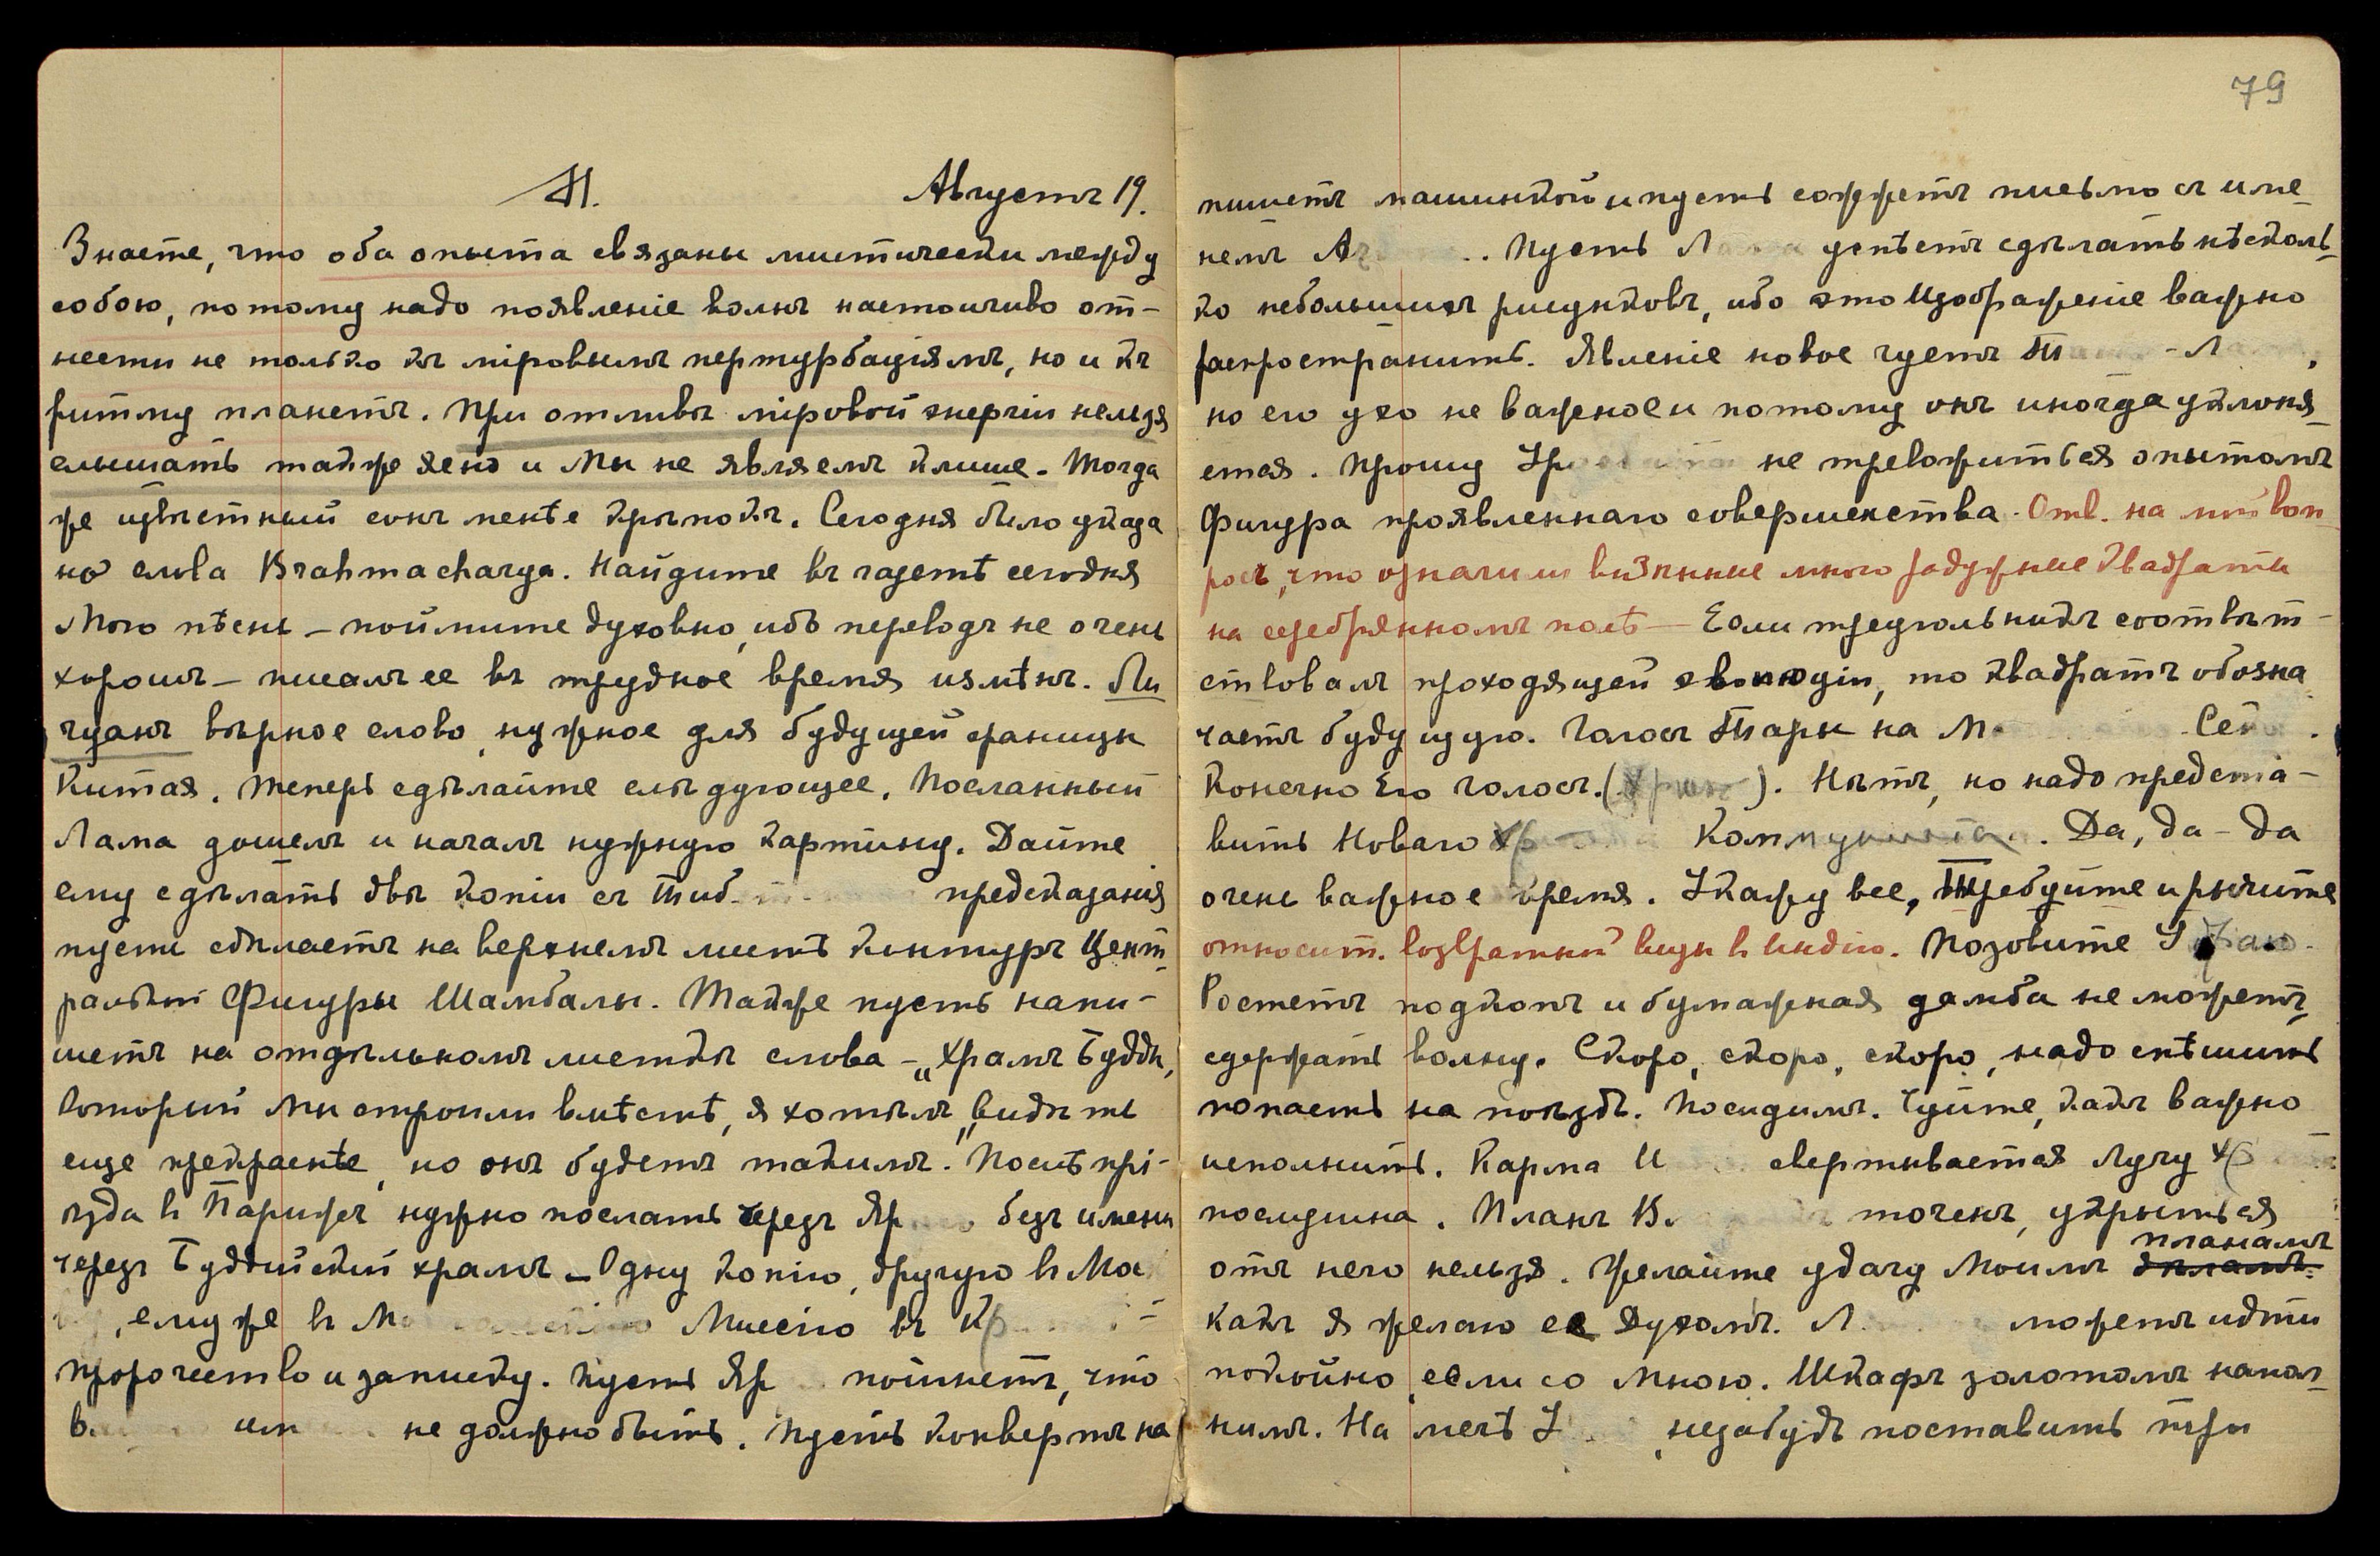 М. Августъ 19.
Знаете, что оба опыта связаны мистически между
собою, потому надо появленіе волнъ настойчиво от-
нести не только къ міровымъ пертурбаціямъ, но и къ
ритму планетъ. При отливѣ міровой энергіи нельзя
слышать также ясно и Мы не являемъ клише. Тогда
же извѣстный сонъ менѣе крѣпокъ. Сегодня было указа
но слова Brahmacharya. Найдите въ газетѣ сегодня
Мою пѣснь – поймите духовно, ибо переводъ не очень
хорошъ – писалъ ее въ трудное время измѣнъ. Ли
чуанъ вѣрное слово, нужное для будущей границы
Китая. Теперь сдѣлайте слѣдующее. Посланный
Лама дошелъ и началъ нужную картину. Дайте
ему сдѣлать двѣ копіи съ Тиб предсказанія
пусть сдѣлаетъ на верхнемъ мѣстѣ контуръ Цент
ральной Фигуры Шамбалы. Также пусть напи-
шетъ на отдѣльномъ листкѣ слова – „Храмъ Будды,
который мы строили вмѣстѣ, я хотѣлъ „видѣть
еще прекраснѣе, но онъ будетъ такимъ." Послѣ прі-
ѣзда в Парижъ нужно послать черезъ Яр безъ имени
черезъ Буддійскій храмъ – Одну копію, другую в Мо
, ему же в М Миссію въ Кр -
пророчество и записку. Пусть Яр пойметъ, что
в им не должно быть. Пусть конвертъ на
79
пишетъ машинкой и пусть сожжетъ письмо съ име
немъ А . Пусть Л успѣетъ сдѣлать нѣсколь
ко небольшихъ рисунковъ, ибо это Изображеніе важно
распространить. Явленіе новое чуетъ Т -Л ,
но его ухо не важное и потому онъ иногда уклоня
ется. Прошу Ур не тревожиться опытомъ
Фигура проявленнаго совершенства. Отв. на мой воп
росъ, что означали видѣнные мною радужные квадраты
на серебрянномъ полѣ – Если треугольникъ соотвѣт-
ствовалъ проходящей эволюціи, то квадратъ обозна
чаетъ будущую. Голосъ Тары на М Сен .
Конечно Его голосъ. ( ). Нѣтъ, но надо предста-
вить Новаго Коммуниста. Да, да – да
очень важное время. Укажу все, Требуйте и рычите
относит. возвратной визы в Индію. Позовите У
Ростетъ подкопъ и бумажная дамба не можетъ
сдержать волну. Скоро, скоро, скоро, надо спѣшить
попасть на поѣздъ. Посидимъ. Чуйте, какъ важно
исполнить. Карма И свертывается Лучу Х
послушна. Планъ В точенъ, укрыться
отъ него нельзя. Желайте удачу Моимъ дѣламъ. планамъ
Какъ Я желаю ее Духамъ. Л можетъ идти
покойно, если со Мною. Шкафъ золотомъ напол
нимъ. На мечѣ У незабудь поставить три